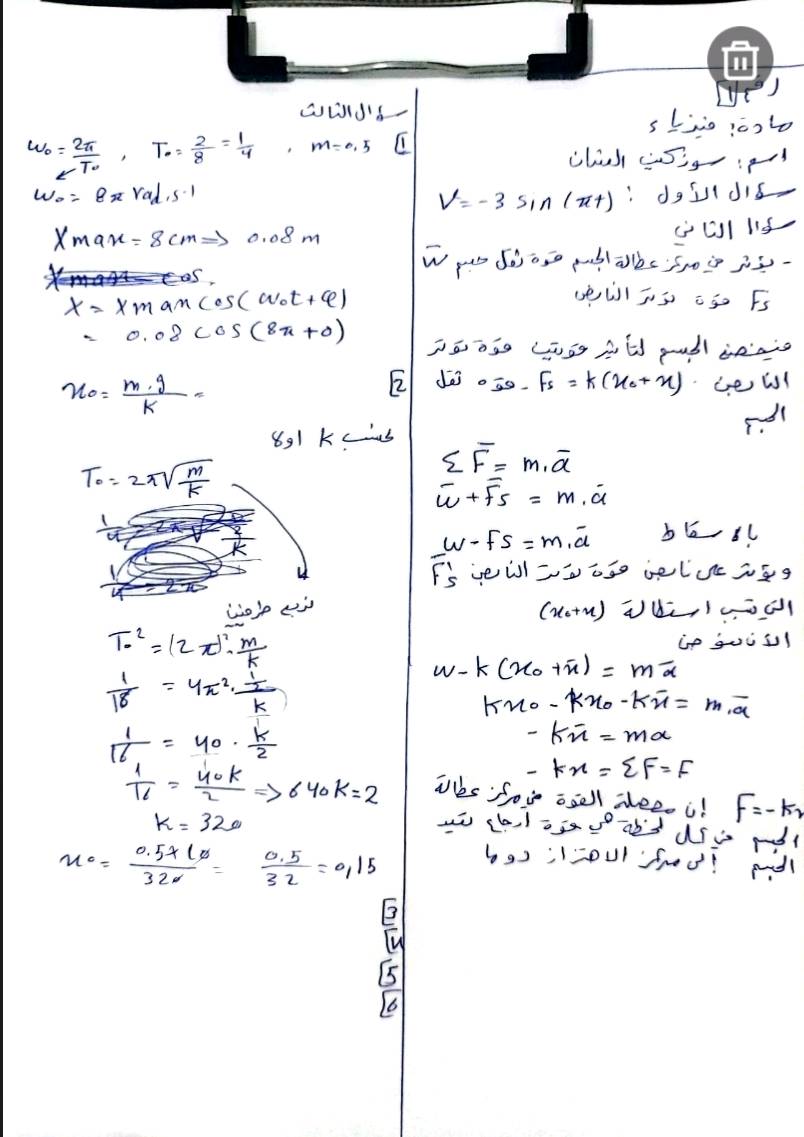 رقم [1]
مادة: فيزياء
اسم:
سؤال الأول: V = -3 sin (πt)
سؤال الثاني
- يؤثر في مركز عطالة الجسم قوة ثقل جسم W̄
F̄s قوة توتر النابض
الجسم لتأثير قوتين قوة توتر
النابض Fs = k(x₀+x) - قوة ثقل
الجسم
Σ F̄ = m.ā
w̄ + F̄s = m.ā
بالاسقاط w - Fs = m.ā
ويؤثر على نابض قوة توتر النابض F̄'s
التي تسبب استطالة (x₀+x)
w - k(x₀ + x̄) = mā
kx₀ - kx₀ - kx̄ = m.ā
- kx̄ = ma
- kx = ΣF = F
F = -kx إن محصلة القوة في مركز عطالة
الجسم في كل لحظة هي قوة ارجاع تعيد
الجسم إلى مركز الاهتزاز دوما
سؤال الثالث
[1] m = 0,5 , T₀ = 2/8 = 1/4 , ω₀ = 2π/T₀
ω₀ = 8π rad.s-1
Xmax = 8cm => 0.08 m
X = Xmax cos(ω₀t + φ)
= 0.08 cos(8π + 0)
[2] x₀ = m.g/k =
نحسب k اولا
T₀ = 2π√m/k
نربع طرفين
T₀² = (2π)². m/k
1/16 = 4π². 1/2/k
1/16 = 40 . k/2
1/16 = 40k/2 => 640k = 2
k = 320
x₀ = 0.5×10/320 = 0.5/32 = 0,15
[3]
[4]
[5]
[6]